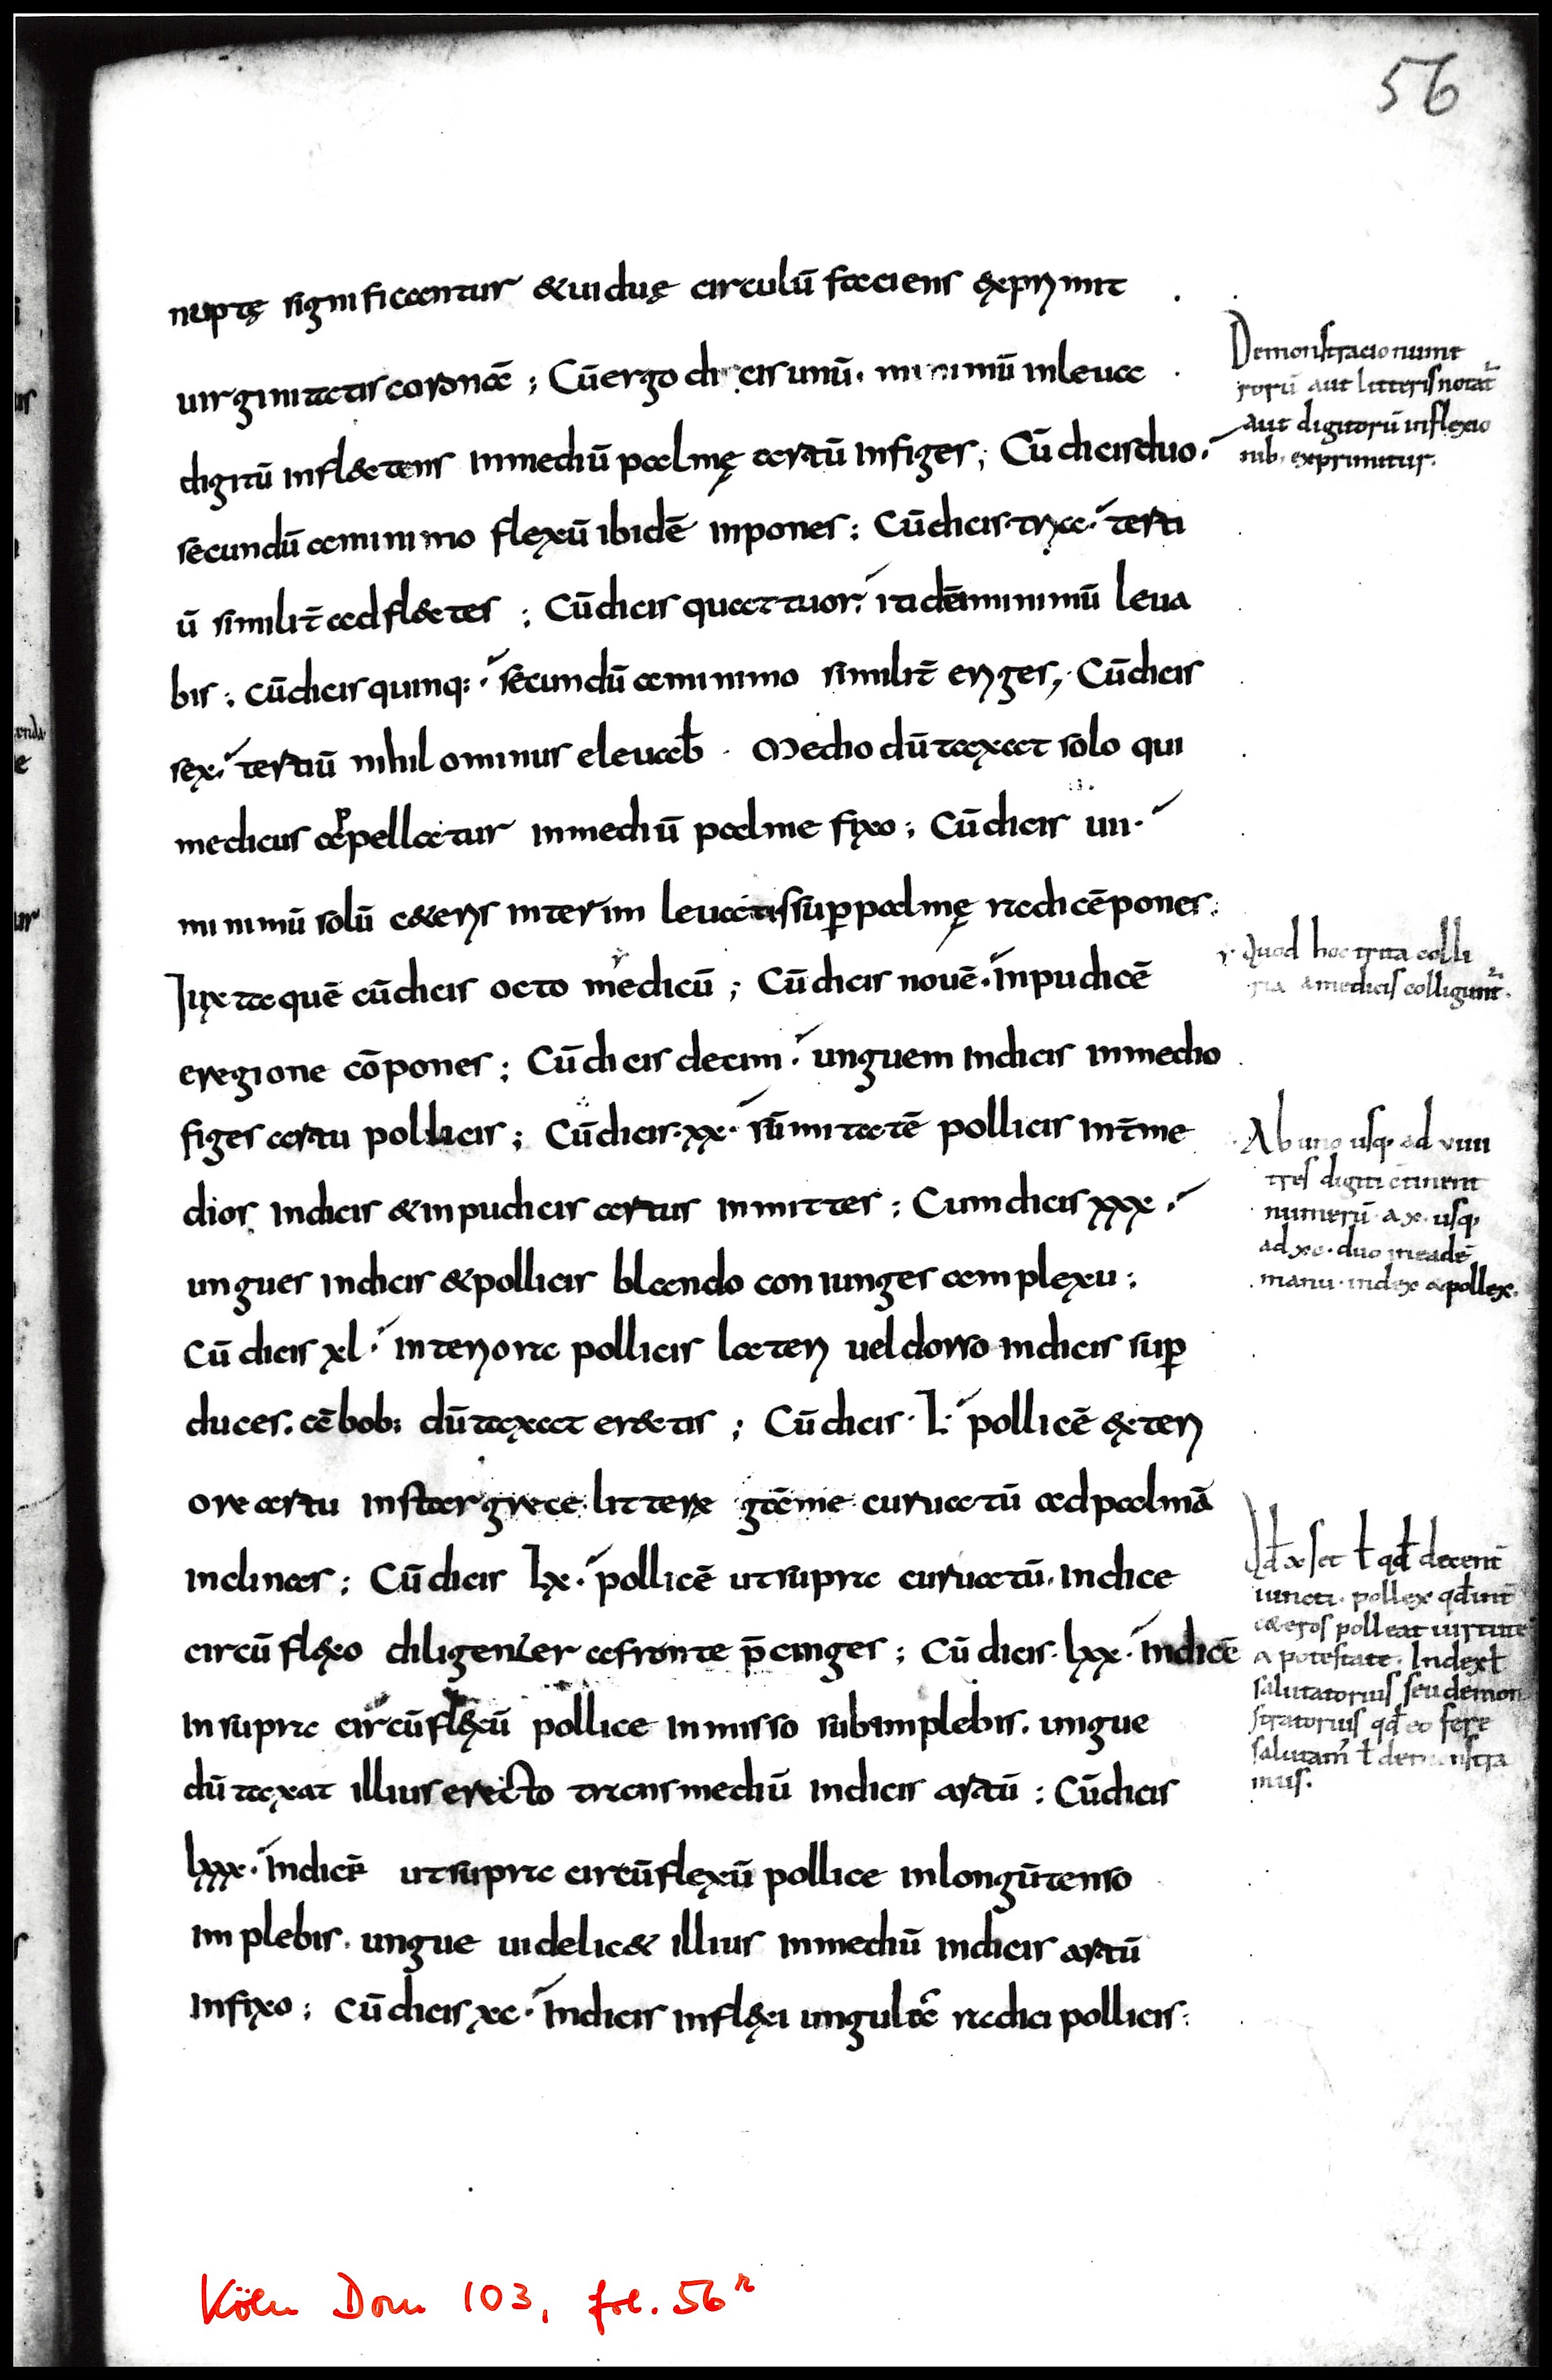 56
nuptę significantur & uiduę circulū faciens exprimit
uirginitatis coronā ; Cū ergo dicis unū. minimū inleua
digitū infl&tens inmediū palmę artū infiges ; Cū dicis duo.
secundū aminimo flexū ibidē inpones ; Cū dicis tria. terti
ū similit̄ adfl&tes ; Cū dicis quattuor. itidē minimū leua
bis ; cū dicis quinq; . secundū aminimo similit̄ eriges ; Cū dicis
sex. tertiū nihilominus eleuab̄ . Medio dūtaxat solo qui
medicus appellatur inmediū palme fixo ; Cū dicis uii.
minimū solū c&eris interim leuatis sup palmę radicē pones ;
Juxta quē cū dicis octo medicū ; Cū dicis nouē. inpudicē
eregione cōpones ; Cū dicis decim. unguem indicis inmedio
figes artu pollicis ; Cū dicis .xx. sūmitatē pollicis int̄ me
dios indicis & inpudicis artus inmittes ; Cum dicis xxx.
ungues indicis & pollicis blando coniunges amplexu ;
Cū dicis xl. interiora pollicis lateri uel dorso indicis sup
duces. ābob; dūtaxat er&tis ; Cū dicis .L. pollicē exteri
ore artu instar grece littere gāme curuatū ad palmā
inclinas ; Cū dicis lx. pollicē ut supra curuatū. indice
circūflexo diligenter afronte p̄cinges ; Cū dicis .lxx. indicē
insupra circūflexū pollice inmisso subimplebis. ungue
dūtaxat illius erecto trans mediū indicis artū ; Cū dicis
lxxx. indicē ut supra circūflexū pollice inlongū tenso
implebis. ungue uidelic& illius inmediū indicis artū
infixo ; Cū dicis xc. indicis inflexi ungulā radici pollicis ;
Demonstracio nume
rorū aut litteris notat̄
aut digitorū inflexio
nib; exprimitur.
Quod hoc trita colli
ria amedicis colligunt̄.
Ab uno usq; ad viiii
tres digiti c̄tinent
numerū. a x. usq;
ad xc. duo ineadē
manu. index & pollex.
iuncti. pollex qd̄ int̄
c&eros polleat uirtute
a potestate. Index ł
salutatorius seu demon
stratorius qd̄ eo fere
salutam̄ ł demonstra
mus.
Köln Dom 103, fol. 56r